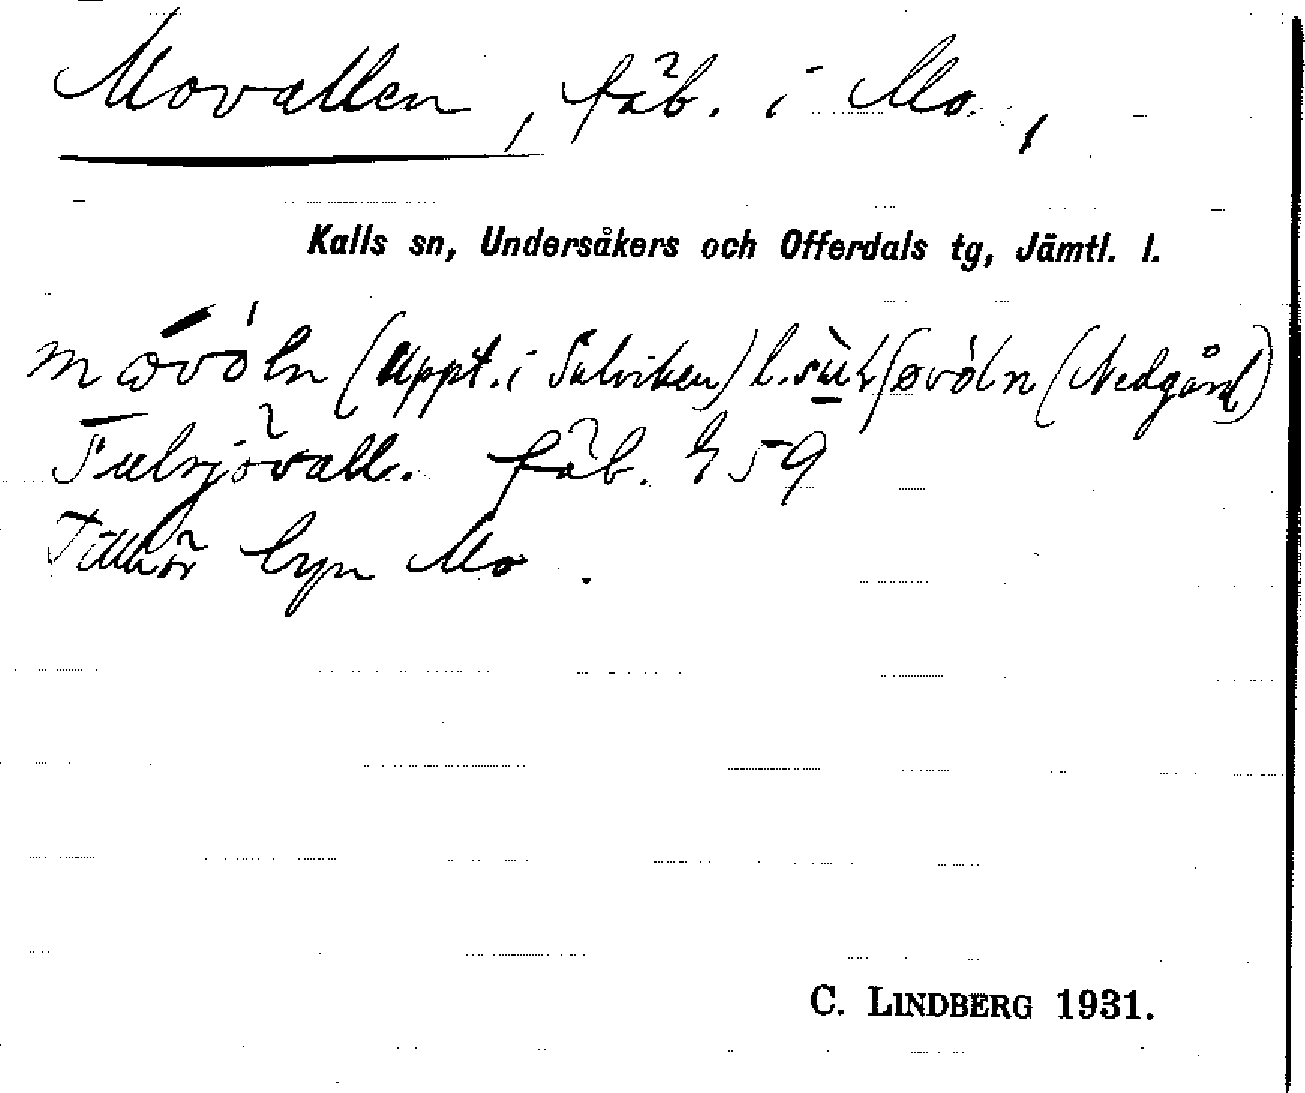 Movallen, fäb. i Mo.,
Kalls sn, Undersåkers och Offerdals tg, Jämtl. l.
mωvóln (Uppt. i Sulviken) l. (Nedgård)
fäb. 59
Tillhör byn Mo.
C. LINDBERG 1931.